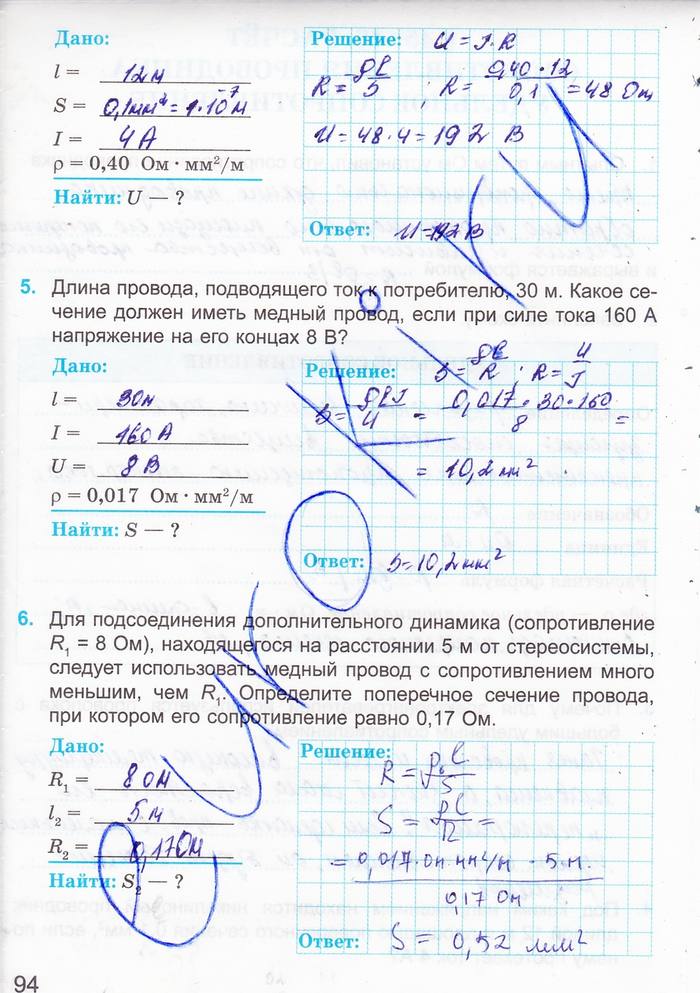 Дано:
l = 12м
S = 0,1мм² = 1·10⁷ м
I = 4 А
ρ = 0,40 Ом · мм²/м
Найти: U — ?
Решение: U = I·R
R = ρl/S ; R = 0,40·12/0,1 = 48 Ом
U = 48·4 = 192 В
Ответ: U = 192 В
5. Длина провода, подводящего ток к потребителю, 30 м. Какое се-
чение должен иметь медный провод, если при силе тока 160 А
напряжение на его концах 8 В?
Дано:
l = 30м
I = 160 А
U = 8 В
ρ = 0,017 Ом · мм²/м
Найти: S — ?
Решение: S = ρl/R ; R = U/I
S = ρlI/U = 0,017·30·160/8 =
= 10,2 мм²
Ответ: S = 10,2 мм²
6. Для подсоединения дополнительного динамика (сопротивление
R₁ = 8 Ом), находящегося на расстоянии 5 м от стереосистемы,
следует использовать медный провод с сопротивлением много
меньшим, чем R₁. Определите поперечное сечение провода,
при котором его сопротивление равно 0,17 Ом.
Дано:
R₁ = 8 Ом
l₂ = 5 м
R₂ = 0,17 Ом
Найти: S₂ — ?
Решение:
R = ρl/S
S = ρl/R =
= 0,017 Ом·мм²/м · 5 м.
0,17 Ом
Ответ: S = 0,52 мм²
94